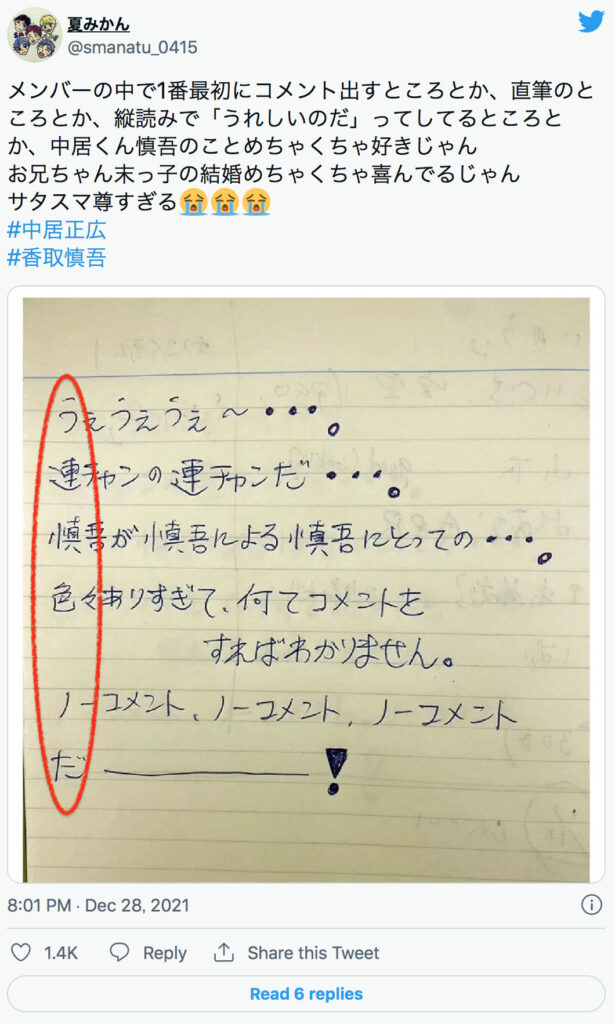 夏みかん
@smanatu_0415
メンバーの中で1番最初にコメント出すところとか、直筆のと
ころとか、縦読みで「うれしいのだ」ってしてるところと
か、中居くん慎吾のことめちゃくちゃ好きじゃん
お兄ちゃん末っ子の結婚めちゃくちゃ喜んでるじゃん
サタスマ尊すぎる😭😭😭
#中居正広
#香取慎吾
うぇうぇうぇ〜・・・。
連チャンの連チャンだ・・・。
慎吾が慎吾による慎吾にとっての・・・。
色々ありすぎて、何てコメントを
すればわかりません。
ノーコメント、ノーコメント、ノーコメント
だ――――!
8:01 PM · Dec 28, 2021
1.4K Reply Share this Tweet
Read 6 replies